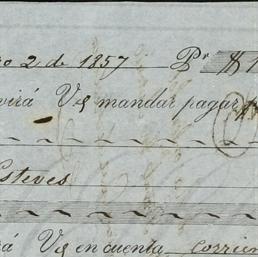 ro 2 de 1857 Pr. $
virá Vs mandar pagar
Esteves
rá Vs en cuenta corrien